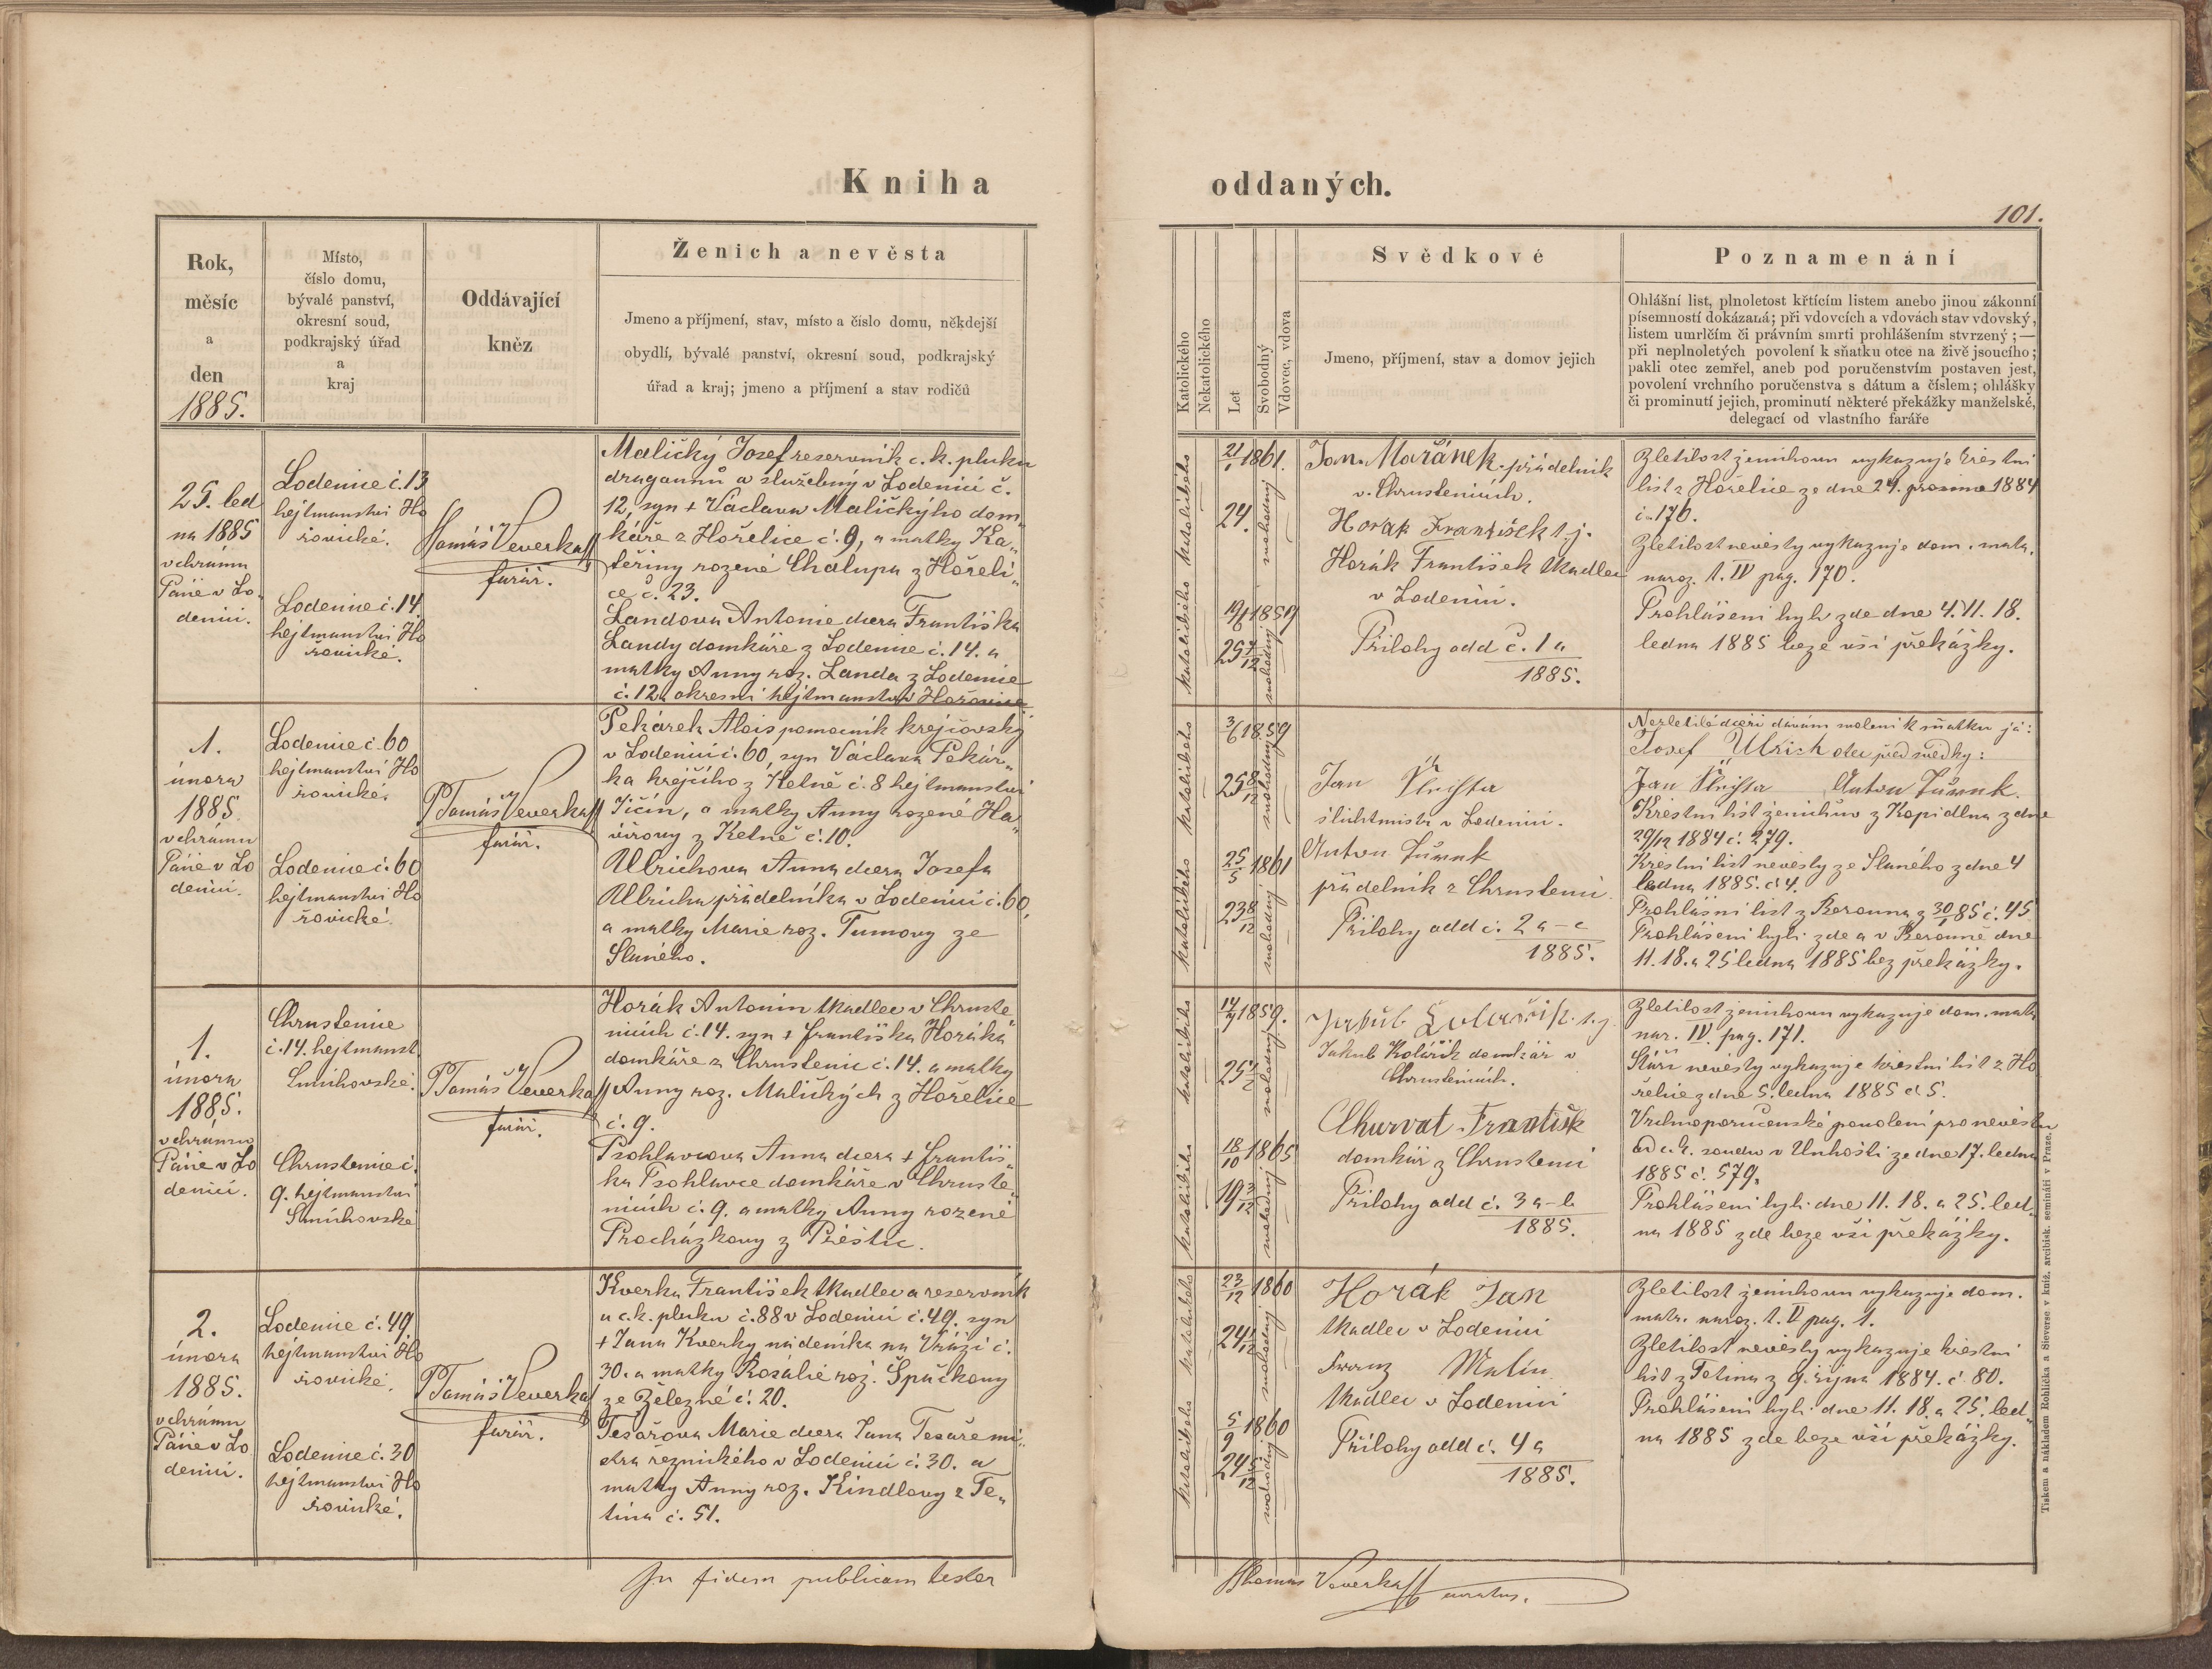 Kniha
oddaných.
101.
Rok,
měsíc
a
den
1885.
Místo,
číslo domu,
bývalé panství,
okresní soud,
podkrajský úřad
a
kraj
Oddávající
kněz
Ženich a nevěsta
Jmeno a příjmení, stav, místo a číslo domu, někdejší
obydlí, bývalé panství, okresní soud, podkrajský
úřad a kraj; jmeno a příjmení a stav rodičů
Katolického
Nekatolického
Let
Svobodný
Vdovec, vdova
Svědkové
Jmeno, příjmení, stav a domov jejich
Poznamenání
Ohlášní list, plnoletost křtícím listem anebo jinou zákonní
písemností dokázaná; při vdovcích a vdovách stav vdovský,
listem umrlčím či právním smrti prohlášením stvrzený;—
při neplnoletých povolení k sňatku otce na živě jsoucího;
pakli otec zemřel, aneb pod poručenstvím postaven jest,
povolení vrchního poručenstva s dátum a číslem; ohlášky
či prominutí jejich, prominutí některé překážky manželské,
delegací od vlastního faráře
25. led
na 1885
v chrámu
Páně v Lo
denici.
Lodenice č. 13
hejtmanství Ho
řovické.
Lodenice č. 14
hejtmanství Ho
řovické.
Tomáš Veverka
farář.
Maličký Josef reservník c. k. pluku
dragounů a služebný v Lodenici č.
12, syn + Václava Maličkýho dom„
káře z Hořelice č. 9, a matky Ka„
teřiny rozené Chalupa z Hořeli„
ce č. 23.
Landova Antonie dcera Františka
Landy domkáře z Lodenice č. 14. a
matky Anny roz. Landa z Lodenice
č. 12 okresní hejtmanství Hořovice
katolického
21/1 1861.
24.
svobodný
katolického
19/6 1859
25 7/12
svobodný
Jan Mařánek přádelník
v Chrustenicích.
Horák František t. j.
Horák František tkadlec
v Lodenici.
Přílohy odd č. 1 a
1885.
Zletilost ženichovu vykazuje křestní
list z Hořelice ze dne 24. prosince 1884
č. 176.
Zletilost nevěsty vykazuje dom. matr.
naroz. t. IV pag. 170.
Prohlášeni byli zde dne 4. 11. 18.
ledna 1885 beze vší překážky.
1.
února
1885.
v chrámu
Páně v Lo
denici.
Lodenice č. 60
hejtmanství Ho
řovické.
Lodenice č. 60
hejtmanství Ho
řovické.
P Tomáš Veverka
farář.
Pekárek Alois pomocník krejčovský
v Lodenici č. 60, syn Václava Pekár„
ka krejčího z Keleně č. 8 hejtmanství
Jičín, a matky Anny rozené Ha„
vířovy z Ketně č. 10.
Ullrichova Anna dcera Josefa
Ullricha přádelníka v Lodenici č. 60,
a matky Marie roz. Tumovy ze
Slaného.
katolického
3/6 1859
25 8/12
svobodný
katolického
25/5 1861
23 8/12
svobodný
Jan Šlichta
šlichtmistr v Lodenici.
Anton
přádelník z Chrustenic
Přílohy odd č. 2 a–c
1885.
Nezletilé dceři dávám svolení k sňatku já:
Josef Ulrich otec před svědky:
Jan Šlichta Anton
Křestní list ženichův z Kopidlna z dne
29/12 1884 č. 279.
Křestní list nevěsty ze Slaného z dne 4
ledna 1885. č 4.
Prohlášní list z Berouna z 30/1 85 č. 45
Prohlášeni byli zde a v Berouně dne
11. 18. a 25 ledna 1885 bez překážky.
1.
února
1885.
v chrámu
Páně v Lo
denici.
Chrustenice
č. 14. hejtmanst.
Smíchovské.
Chrustenice č.
9. hejtmanství
Smíchovské
P Tomáš Veverka
farář.
Horák Antonín tkadlec v Chruste„
nicích č. 14. syn + Františka Horáka
domkáře z Chrustenic č. 14. a matky
Anny roz. Maličkých z Hořelice
č. 9.
Psohlavcova Anna dcera + Františ„
ka Psohlavce domkáře v Chruste„
nicích č. 9. a matky Anny rozené
Procházkovy z Přéstic.
katolického
14/7 1859.
25 1/2
svobodný
katolického
18/10 1865
19 3/12
svobodný
Jakub Kolařík t. j.
Jakub Kolařík domkář v
Chrustenicích.
Churvat František
domkář z Chrustenic
Přílohy odd č. 3 a–b
1885.
Zletilost ženichovu vykazuje dom. matr.
nar. IV. pag. 171.
Stáří nevěsty vykazuje křestní list z Ho
řelice z dne 5. ledna 1885 č. 5.
Vrchnoporučenské povolení pro nevěstu
od c. k. soudu v Unhošti ze dne 17. ledna
1885 č. 579.
Prohlášeni byli dne 11. 18. a 25. led„
na 1885 zde beze vší překážky.
2.
února
1885.
v chrámu
Páně v Lo
denici.
Lodenice č. 49
hejtmanství Ho
řovické.
Lodenice č. 30
hejtmanství Ho
řovické.
P Tomáš Veverka
farář.
Kverka František tkadlec a reservník
u c. k. pluku č. 88 v Lodenici č. 49. syn
+ Jana Kverky nádeníka na Vráži č.
30. a matky Rosalie roz. Špačkovy
ze Železné č. 20.
Tesařova Marie dcera Jana Tesaře mi„
stra řeznického v Lodenici č. 30. a
matky Anny roz. Kindlovy z Te„
tína č. 51.
katolického
23/12 1860
24 1/12
svobodný
katolického
5/9 1860
24 5/12
svobodný
Horák Jan
tkadlec v Lodenici
Franz Malin
tkadlec v Lodenici
Přílohy odd č. 4 a
1885.
Zletilost ženichovu vykazuje dom.
matr. naroz. t. V pag. 1.
Zletilost nevěsty vykazuje křestní
list z Tetína z 9. října 1884. č. 80.
Prohlášeni byli dne 11. 18. a 25. led„
na 1885 zde beze vší překážky.
In fidem publicam testor
Thomas Veverka curatus.
Tiskem a nákladem Rohlíčka a Sieverse v kníž. arcibisk. semináři v Praze.